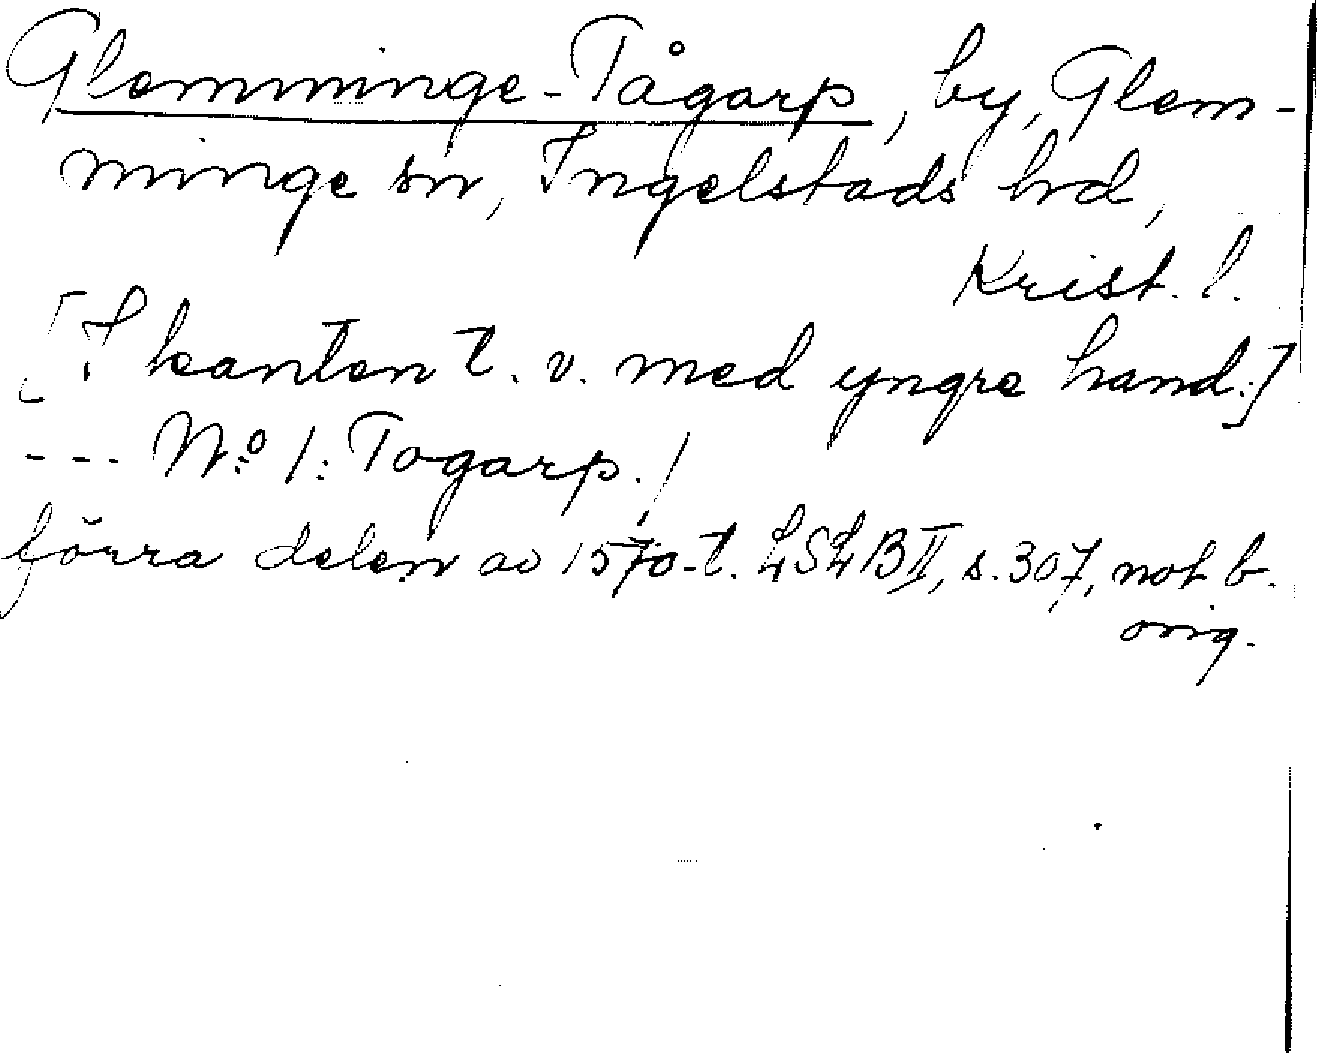 Glemminge-Tågarp, by, Glem-
minge sn, Ingelstads hd,
Krist. l.
[I kanten t. v. med yngre hand:]
--- No: 1: Togarp./
förra delen av 1570-t. LSLB II, s. 307, not b.
orig.